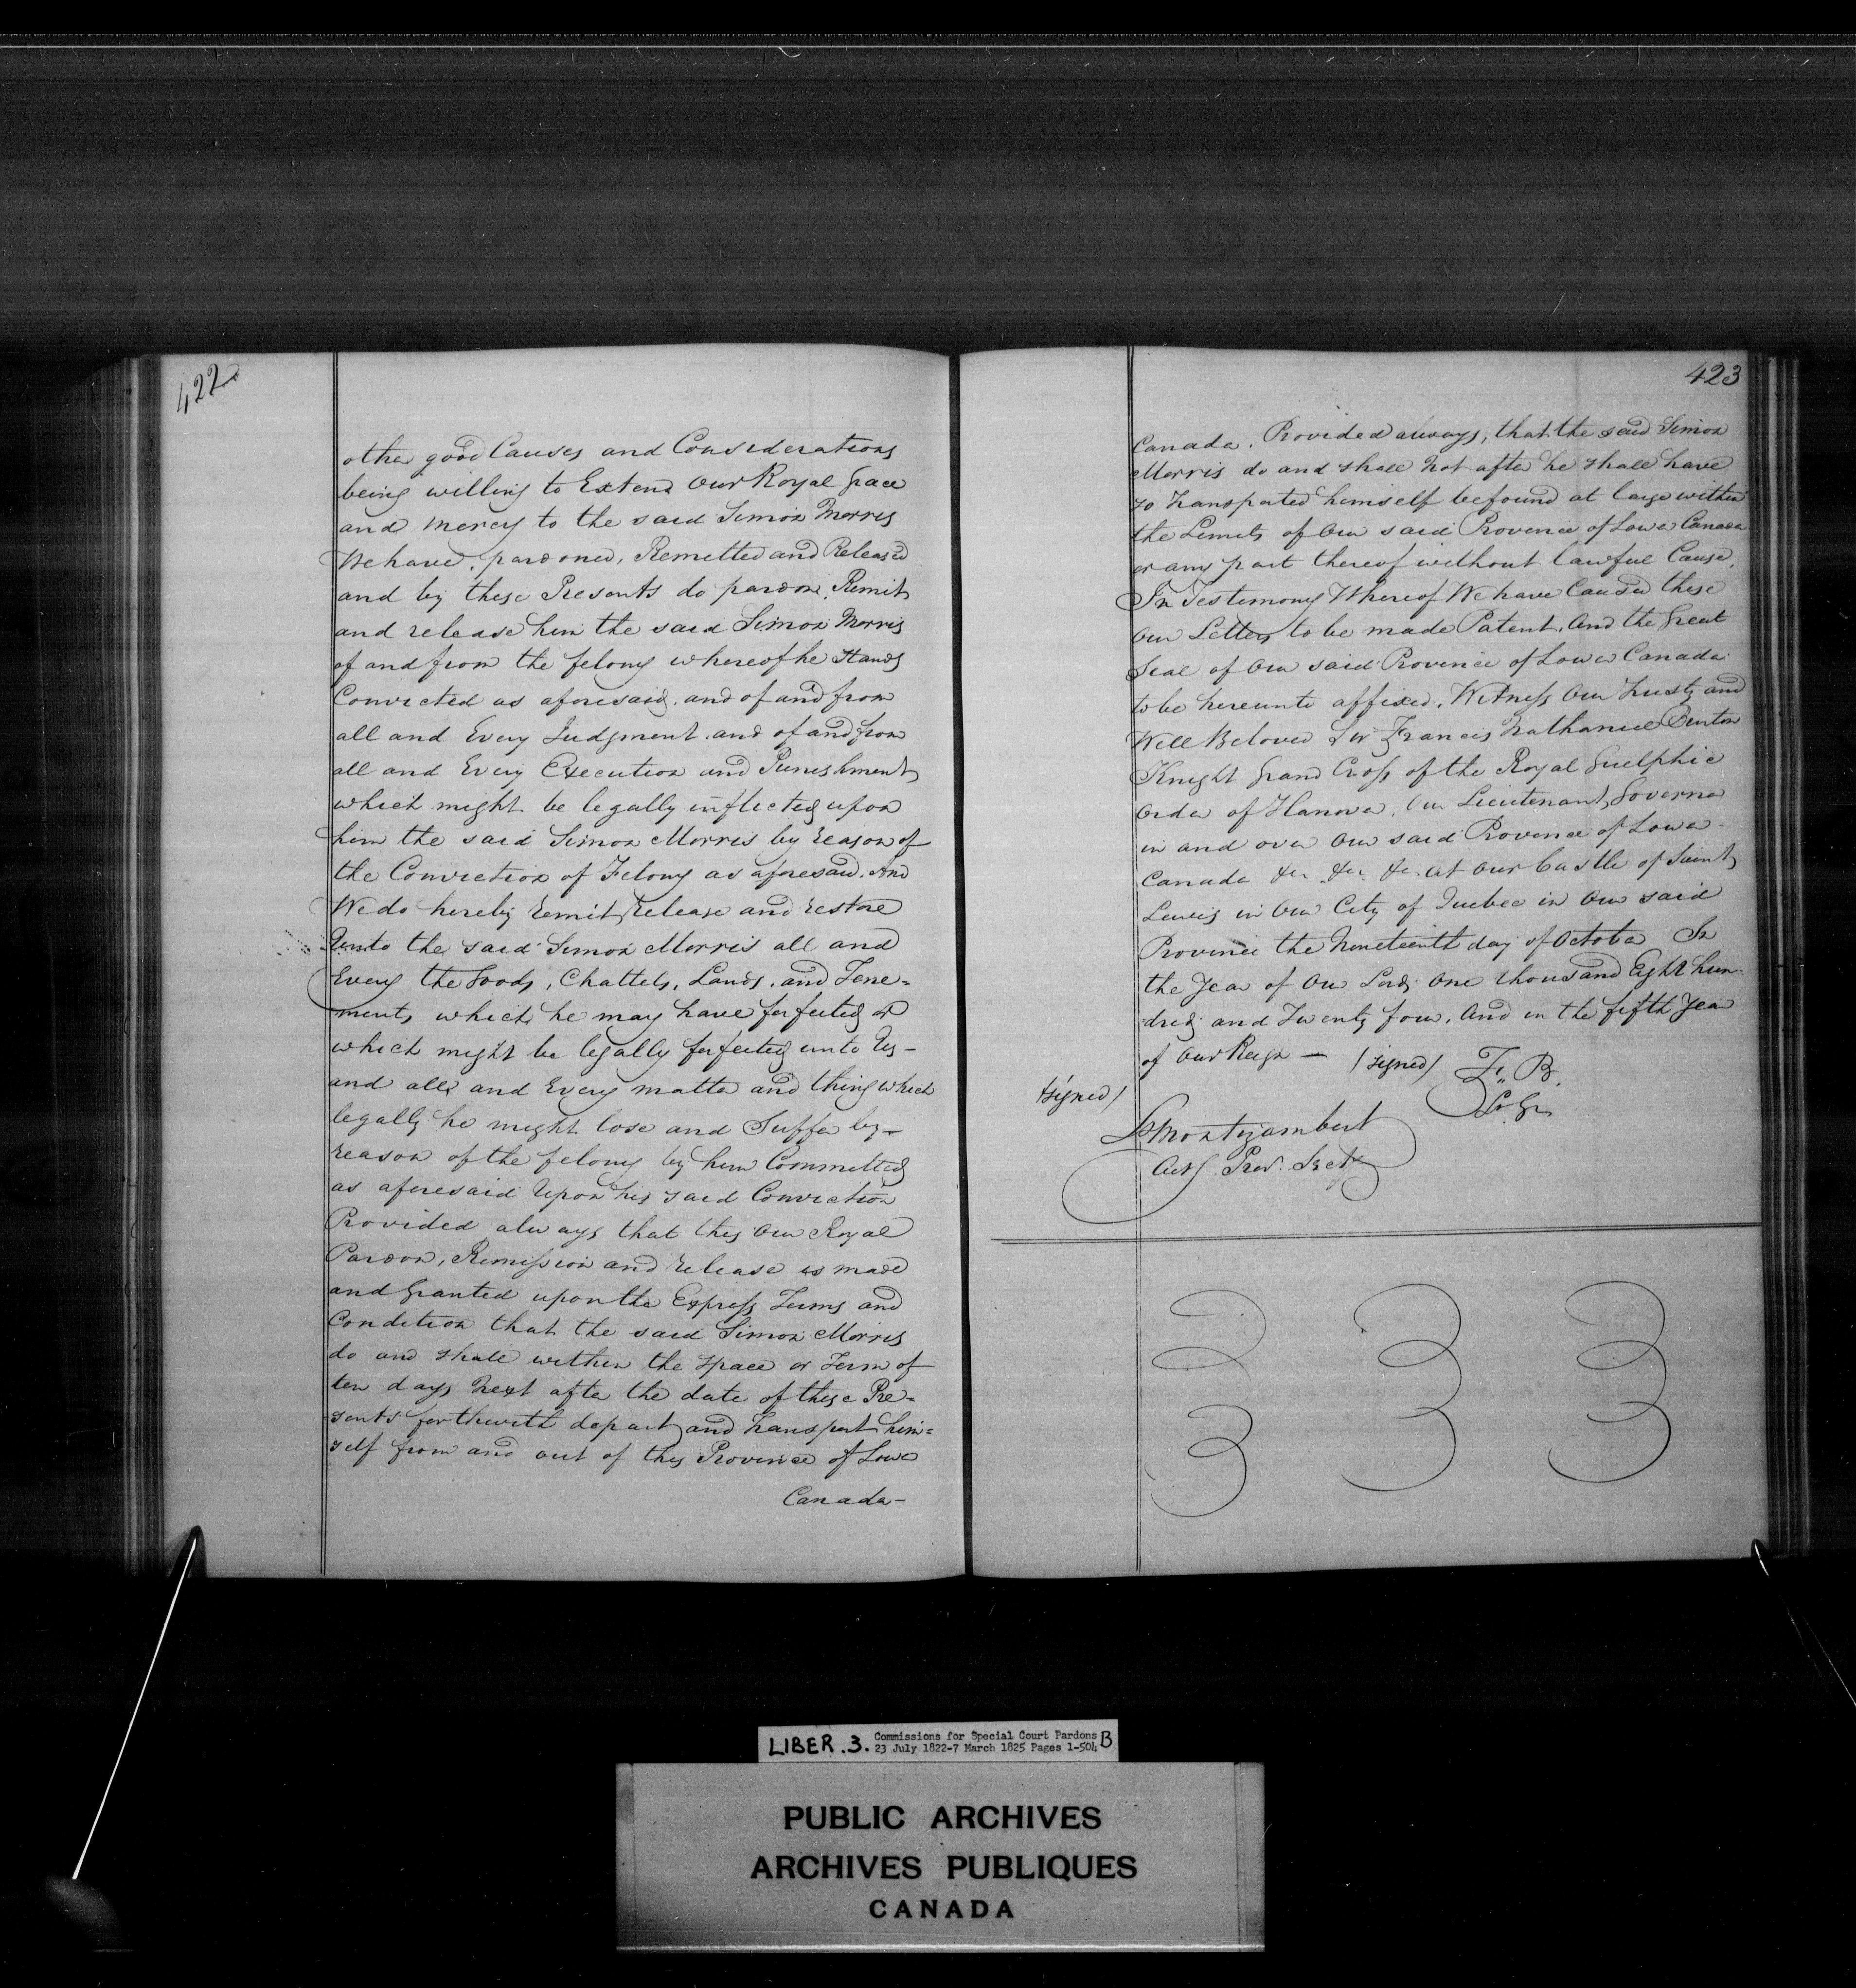 422
other good Causes and Considerations
being willing to Extend Our Royal Grace
and mercy to the said Simon Morris
We have, pardoned, Remitted and Released
and by these Presents do pardon, Remit
and release him the said Simon Morris
of and from the felony whereof he Stands
Convicted as aforesaid, and of and from
all and Every Judgment, and of and from
all and Every Execution and Punishment
which might be legally inflicted upon
him the said Simon Morris by reason of
the Conviction of Felony as aforesaid. And
We do hereby remit, release and restore
Unto the said Simon Morris all and
Every the Goods, Chattels, Lands, and Tene=
ments which he may have forfeited or
which might be legally forfeited unto Us-
and all and Every matter and thing which
legally he might lose and Suffer by-
reason of the felony by him Committed
as aforesaid Upon his said Conviction
Provided always that this Our Royal
Pardon, Remission and release is made
and Granted upon the Express Terms and
Condition that the said Simon Morris
do and shall within the space or Term of
ten days Next after the date of these Pre=
sents forthwith depart and Transport him=
self from and out of this Province of Lower
Canada-
423
Canada. Provided always, that the said Simon
Morris do and shall Not after he shall have
so Transported himself be found at large within
the Limits of Our said Province of Lower Canada
or any part thereof without lawful Cause.
In Testimony Whereof We have Caused these
Our Letters to be made Patent, And the Great
Seal of Our said Province of Lower Canada
to be hereunto affixed. Witness Our Trusty and
Well Beloved Sir Francis Nathaniel Burton
Knight Grand Cross of the Royal Guelphic
Order of Hanover, Our Lieutenant Governor
in and over Our said Province of Lower
Canada &c. &c. &c. at Our Castle of Saint
Lewis in Our City of Quebec in Our said
Province the Nineteenth day of October In
the Year of Our Lord One thousand Eight hun-
dred and Twenty four, And in the fifth Year
of Our Reign — (signed) F. B.
Lt. Gr.
(signed)
Ls Montizambert
Actg. Prov. Secty
LIBER.3. Commissions for Special Court Pardons B
23 July 1822-7 March 1825 Pages 1-504
PUBLIC ARCHIVES
ARCHIVES PUBLIQUES
CANADA